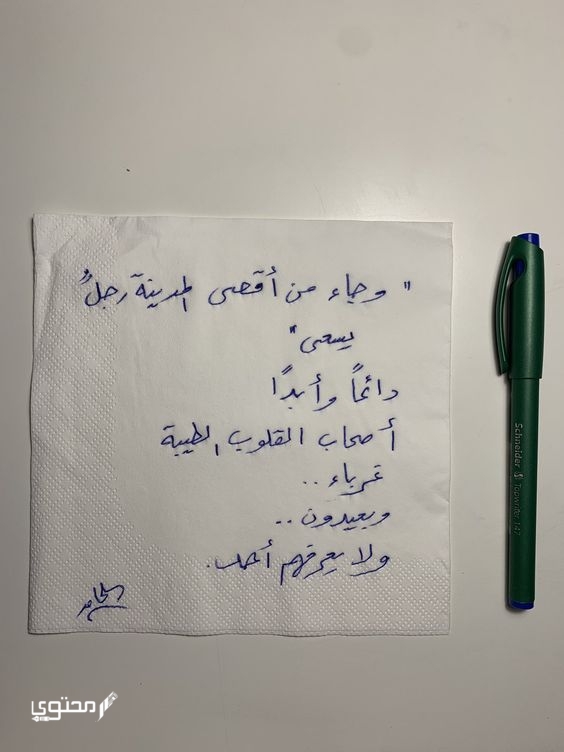 " وجاء من أقصى المدينة رجلٌ
يسعى "
دائمًا وأبدًا
أصحاب القلوب الطيبة
غرباء ..
وبعيدون ..
ولا يعرفهم أحد.
Schneider Topwriter 147
محتوى